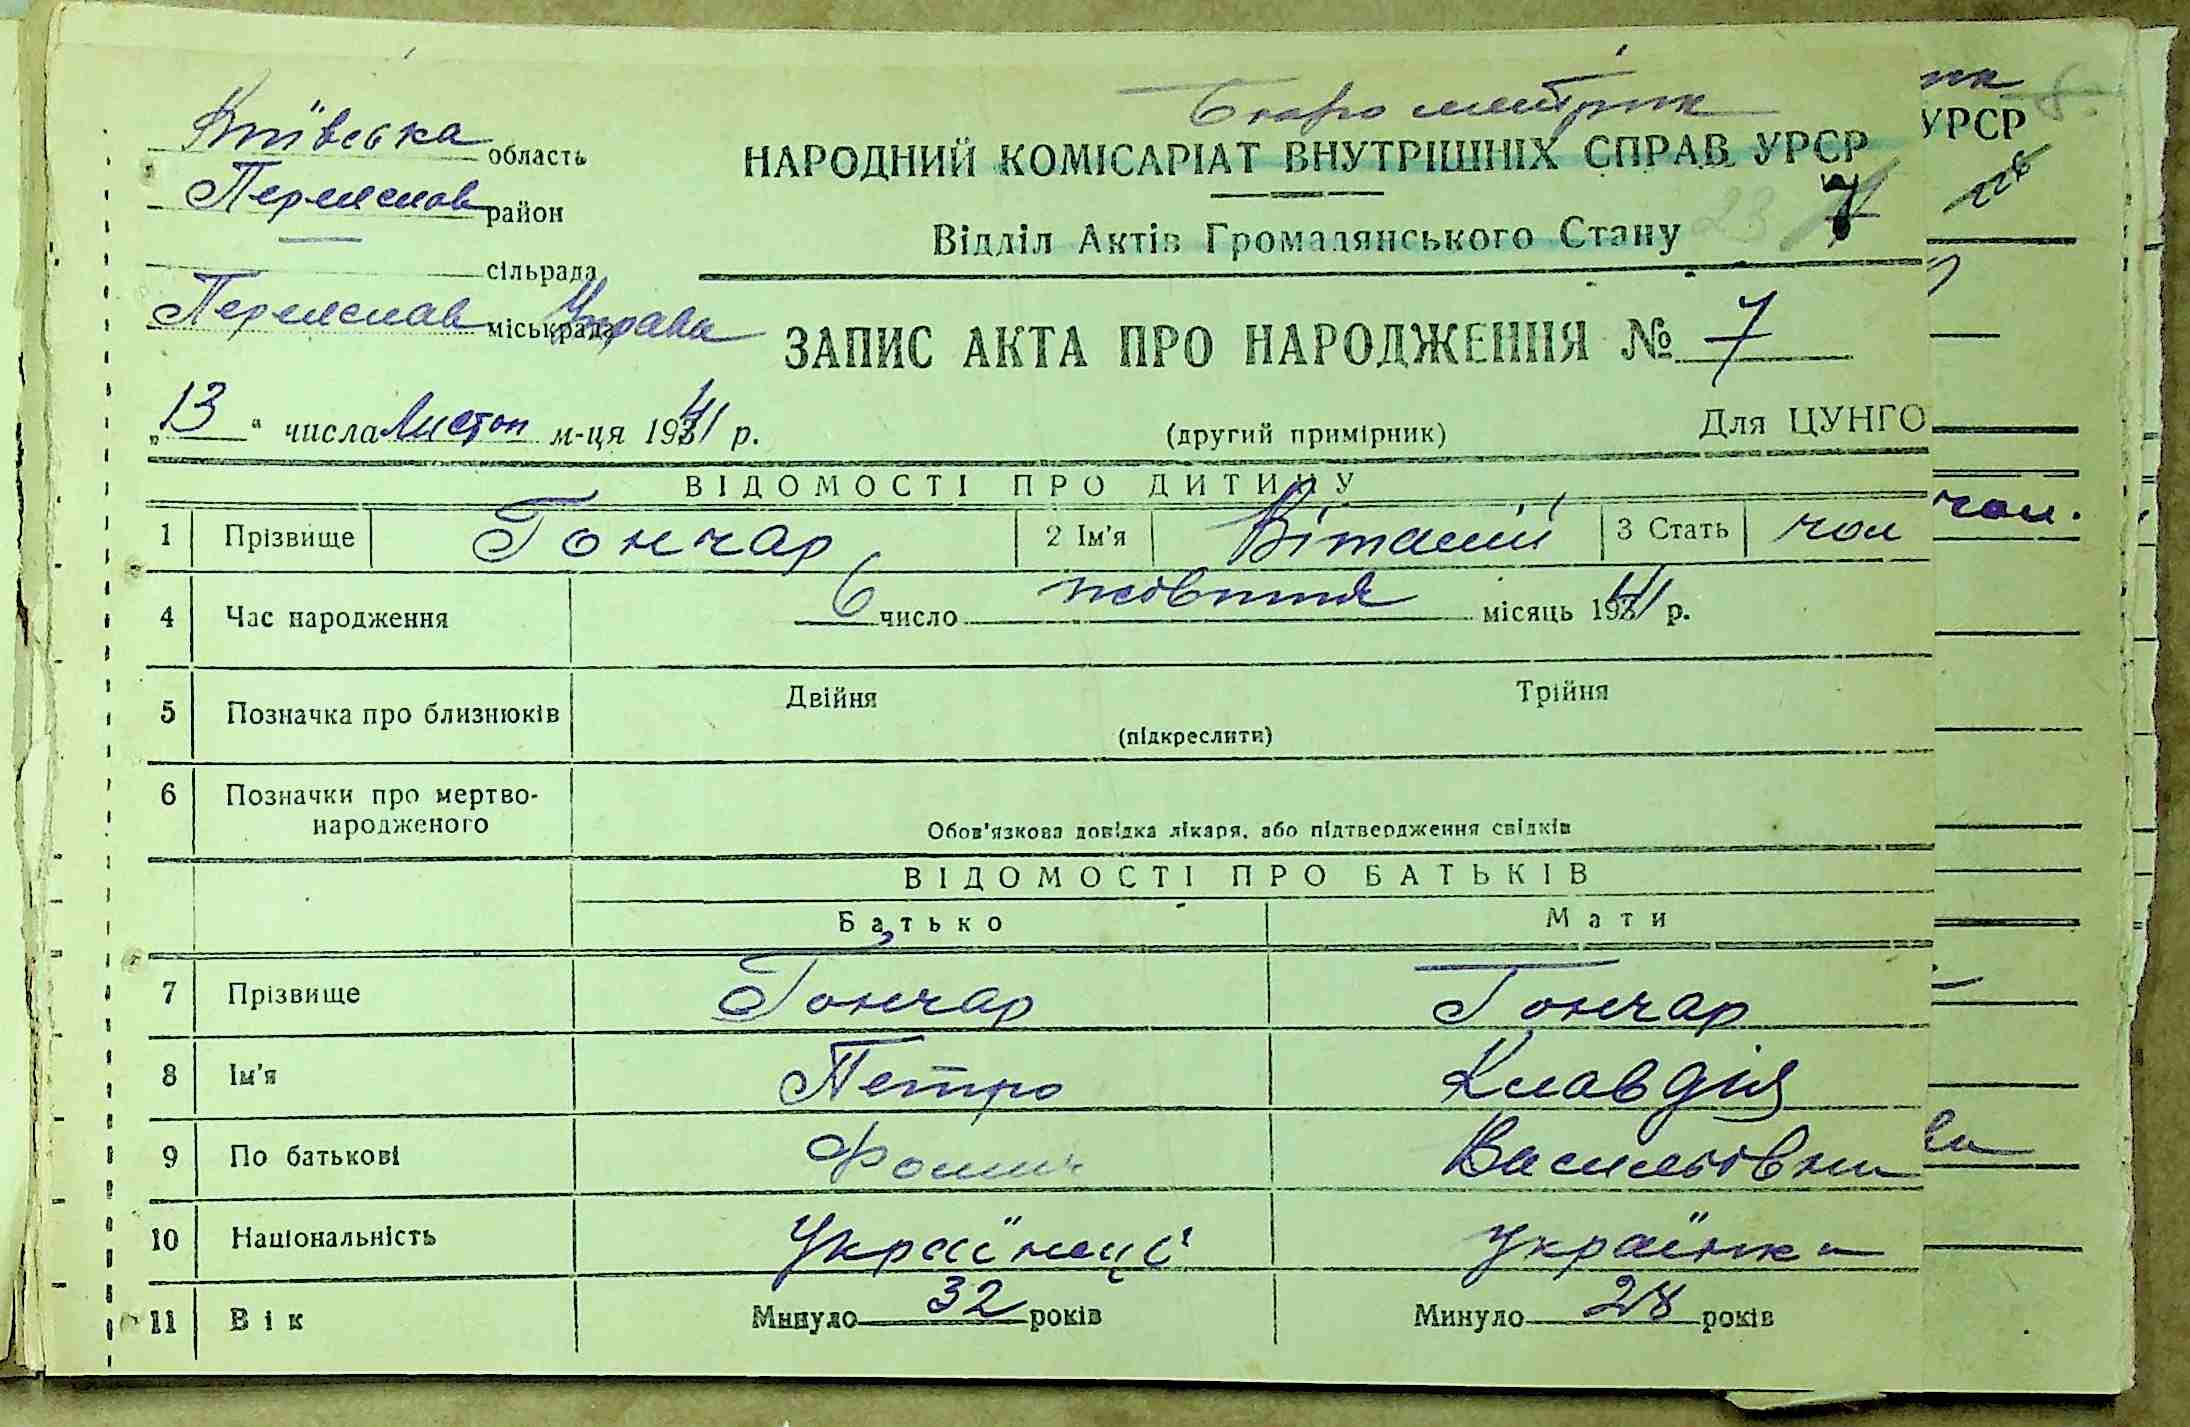 Бюро метрик
Київська область
НАРОДНИЙ КОМІСАРІАТ ВНУТРІШНІХ СПРАВ УРСР
УРСР
Переяслав район
Відділ Актів Громадянського Стану 23 7
сільрада
Переяслав міськрада Управа
ЗАПИС АКТА ПРО НАРОДЖЕННЯ № 7
„13“ числа Листоп м-ця 1941 р.
(другий примірник)
Для ЦУНГО
ВІДОМОСТІ ПРО ДИТИНУ
1 Прізвище Гончар 2 Ім'я Віталій 3 Стать чол
чол.
4 Час народження 6 число жовтня місяць 1941 р.
5 Позначка про близнюків Двійня Трійня
(підкреслити)
6 Позначки про мертво-
народженого
Обов'язкова довідка лікаря, або підтвердження свідків
ВІДОМОСТІ ПРО БАТЬКІВ
Батько Мати
7 Прізвище Гончар Гончар
8 Ім'я Петро Клавдія
9 По батькові Фомич Васильовна
10 Національність Українець українка
11 Вік Минуло 32 років Минуло 28 років